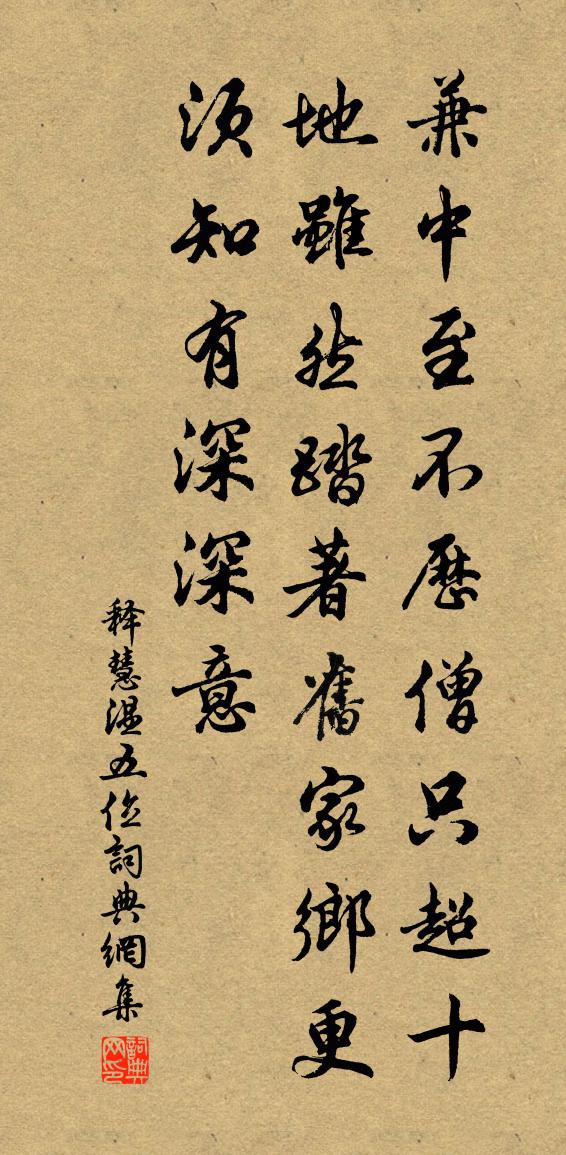 兼中至不歷僧只超十
地雖然踏著舊家鄉更
須知有深深意
释慧温五位詞典網集
詞典網印